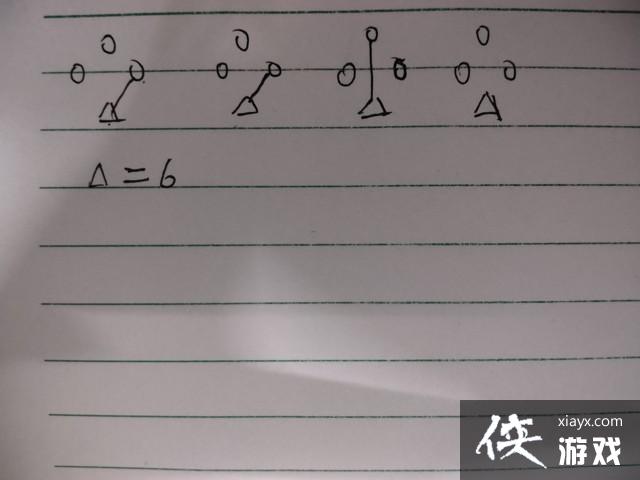 Δ = 6
侠 xiayx.com
游戏